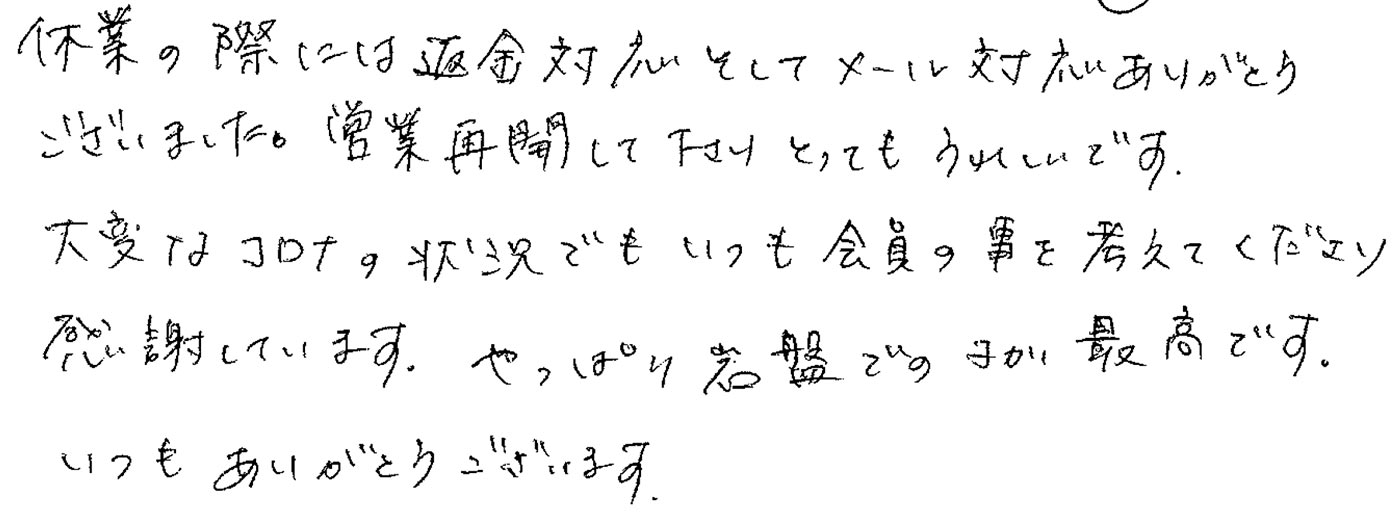 休業の際には返金対応そしてメール対応ありがとう
ございました。営業再開して下さりとってもうれしいです.
大変なコロナの状況でもいつも会員の事を考えてくださり
感謝しています. やっぱり岩盤での 最高です.
いつもありがとうございます.